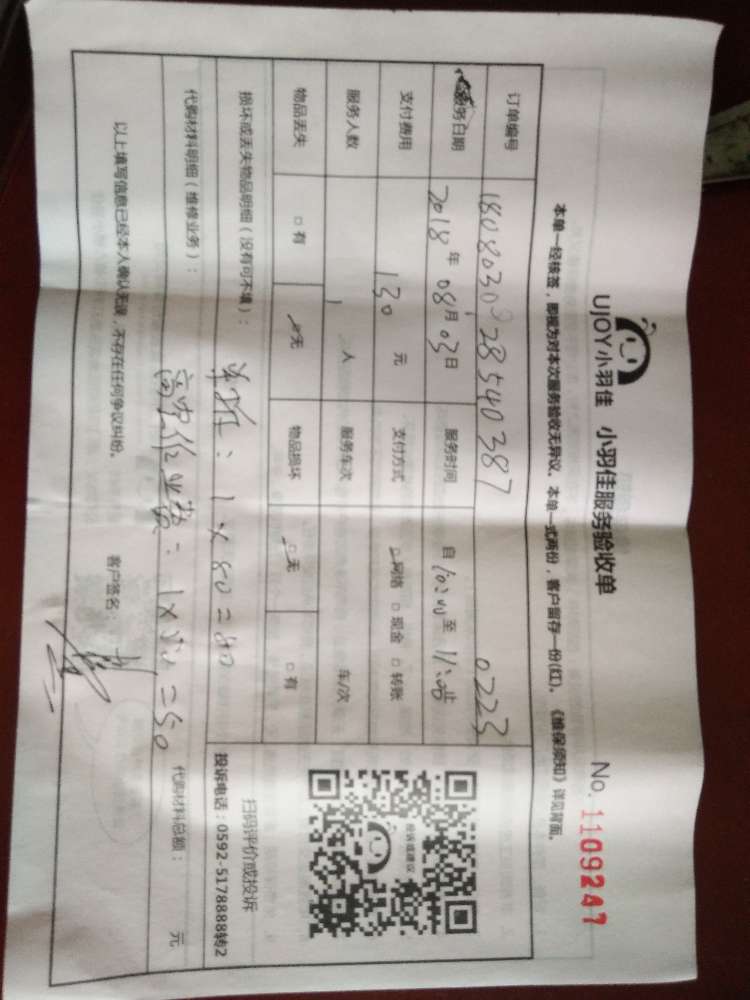 UJOY小羽佳 小羽佳服务验收单
No. 1109247
本单一经核签，即视为对本次服务验收无异议。本单一式两份，客户留存一份(红)。《维保须知》详见背面。
订单编号 180803092854038​7 0223
服务日期 2018年08月03日 服务时间 自10:20至11:
支付费用 130元 支付方式 □网络 □现金 □转账
服务人数 1人 服务车次 车/次
物品丢失 □有 □无 物品损坏 □无 □有
损坏或丢失物品明细（没有可不填）：
单班：1×80=80
代购材料明细（维修业务）：
高空作业费：1×50=50
代购材料总额： 元
以上填写信息已经本人确认无误，不存在任何争议纠纷。 客户签名：
投诉或建议
扫码评价或投诉
投诉电话：0592-5178888转2